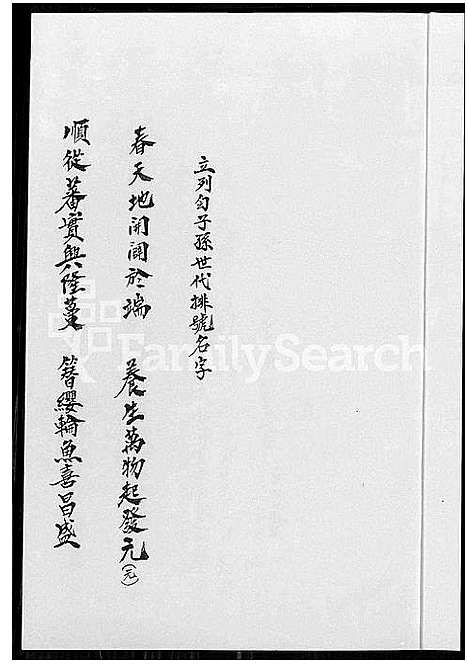 立列勻子孫世代排號名字
春天地開闢於端　養生萬物起發元(元)
順從蕃實興隆蔓　簪纓輪魚喜昌盛
FamilySearch